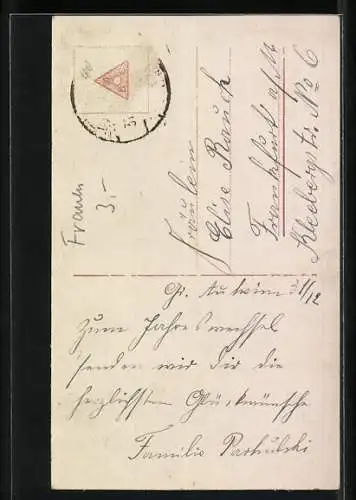 40
Frauen
3,-
Fräulein
Elise Rauch
Frankfurt a/M
Kleebergstr. No 6
Gr. Auheim 31/12
Zum Jahreswechsel
senden wir Dir die
herzlichsten Glückwünsche
Familie